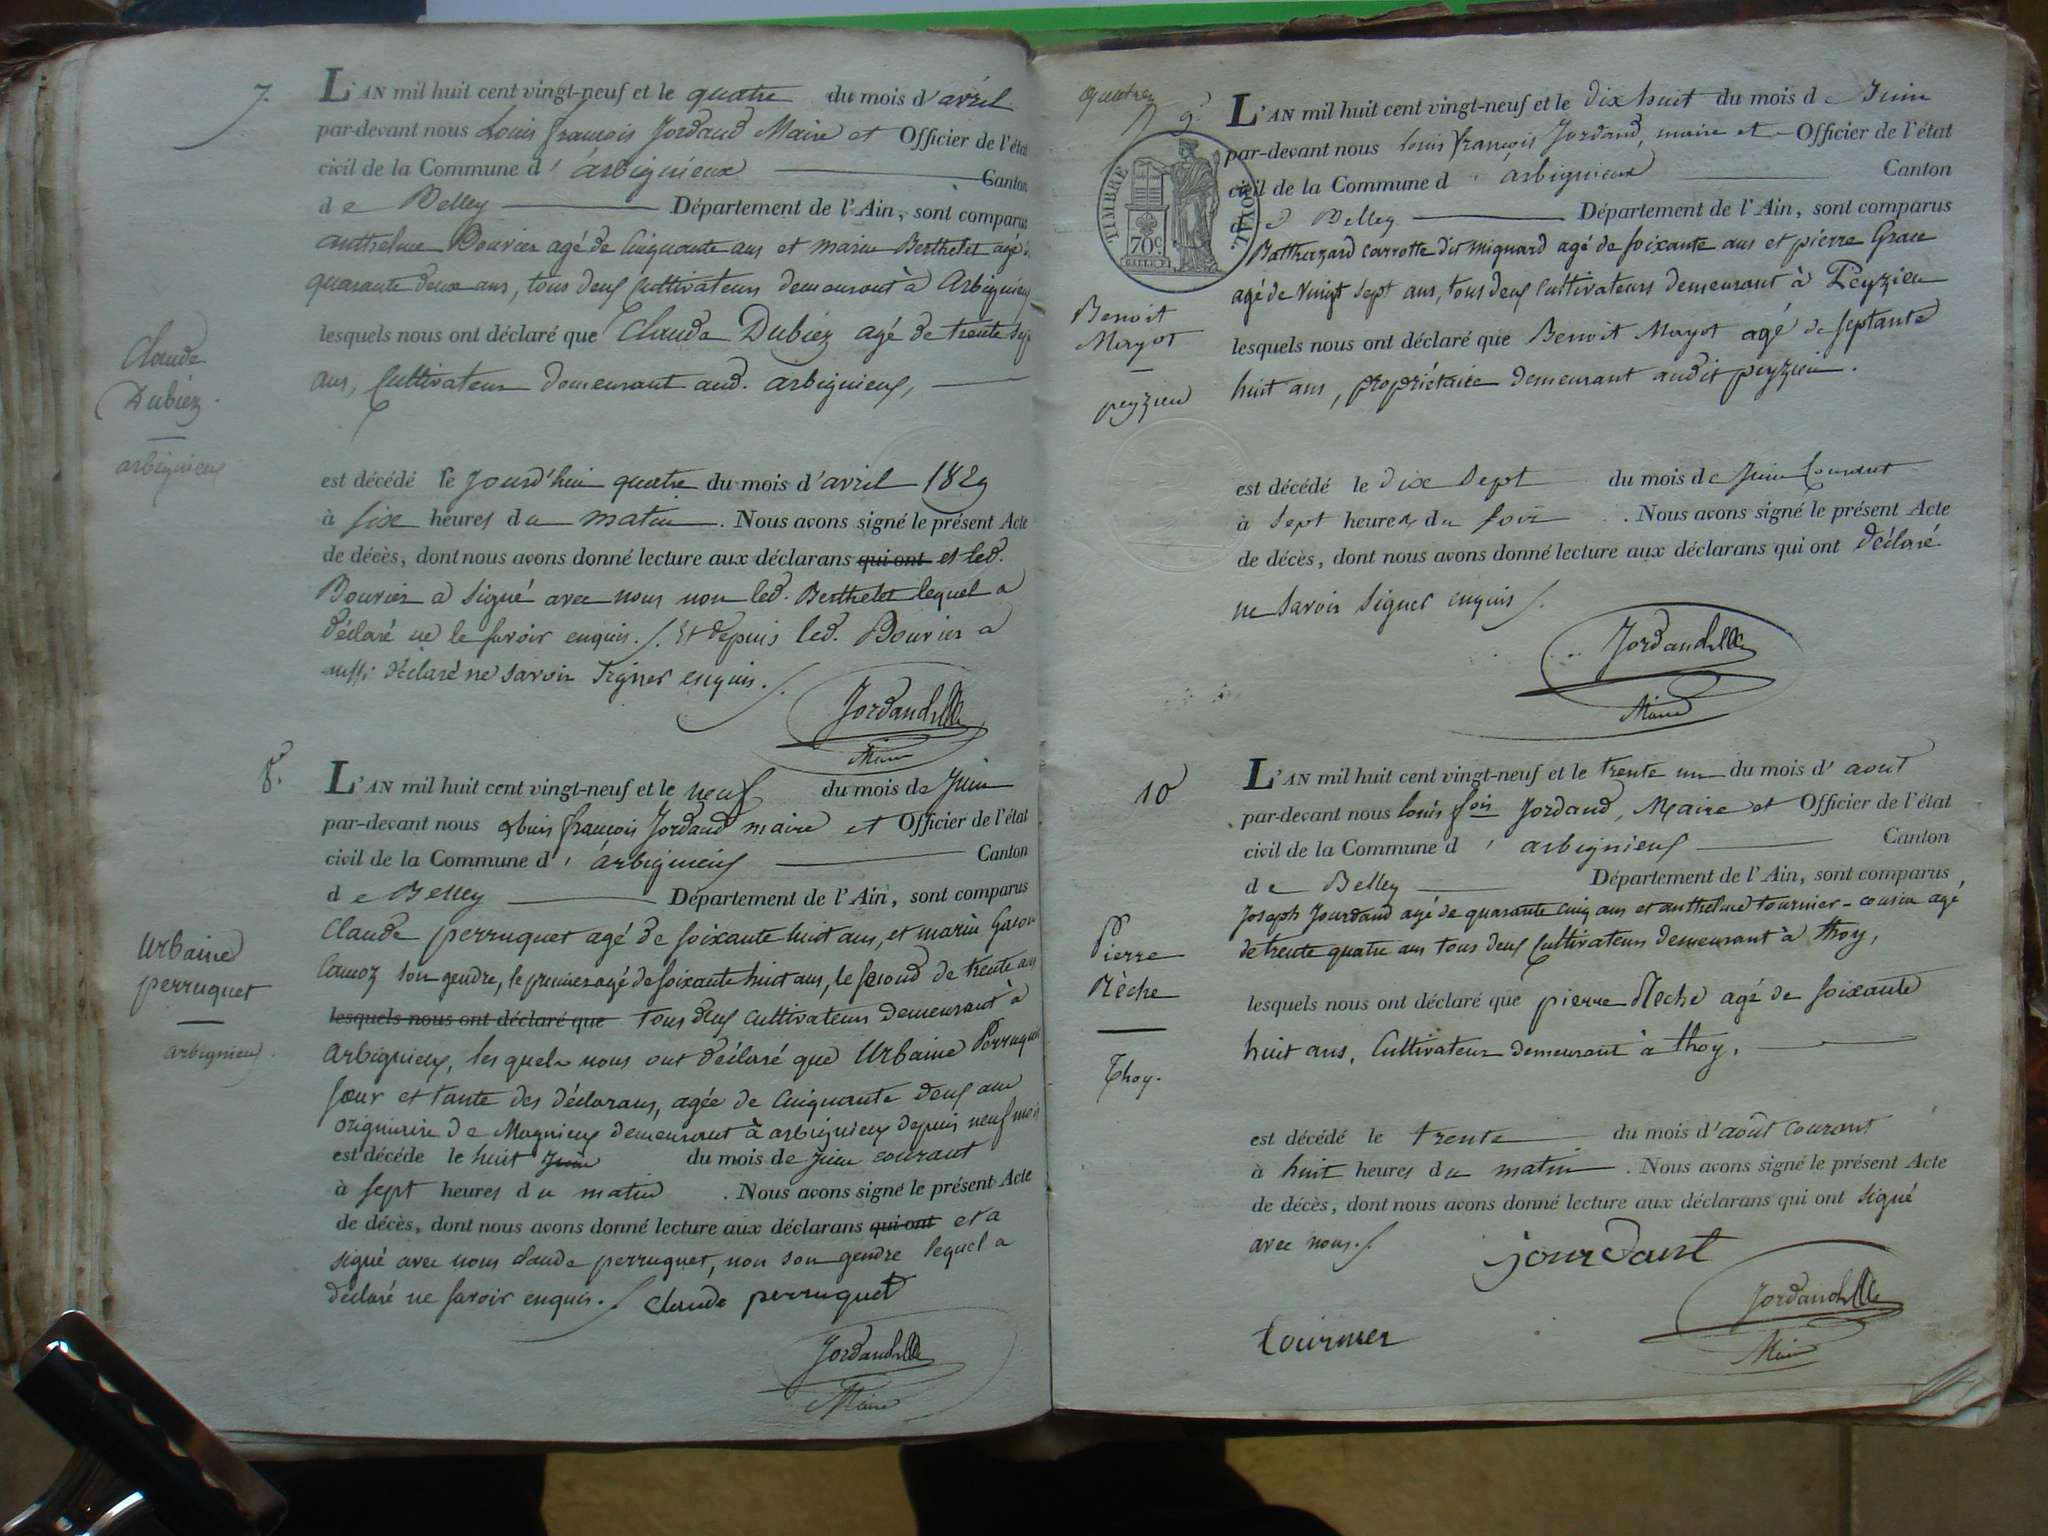 7.
L'AN mil huit cent vingt-neuf et le quatre du mois d'avril
par-devant nous Louis françois Jordand Maire et Officier de l'état
civil de la Commune d' arbignieux Canton
de Belley Département de l'Ain, sont comparus
anthelme Bouvier agé de Cinquante ans et marin Berthelet agé de
quarante deux ans, tous deux Cultivateurs demeurant à Arbignieux
lesquels nous ont déclaré que Claude Dubiez agé de trente sept
ans, Cultivateur demeurant aud. arbignieux,
Claude
Dubiez.
arbignieux
est décédé le jourd'hui quatre du mois d'avril 1829
à six heures du matin. Nous avons signé le présent Acte
de décès, dont nous avons donné lecture aux déclarans qui ont et led.
Bouvier a signé avec nous non led. Berthelet lequel a
déclaré ne le savoir enquis./. Et depuis led. Bouvier a
aussi déclaré ne savoir signer enquis./.
Jordand
Maire
8.
L'AN mil huit cent vingt-neuf et le neuf du mois de Juin
par-devant nous Louis françois Jordand maire et Officier de l'état
civil de la Commune d' arbignieux Canton
de Belley Département de l'Ain, sont comparus
Claude perruquet agé de soixante huit ans, et marin
son gendre, le premier agé de soixante huit ans, le second de trente ans
lesquels nous ont déclaré que tous deux cultivateurs demeurant à
Arbignieux, lesquels nous ont déclaré que Urbaine Perruquet
sœur et tante des déclarans, agée de Cinquante deux ans
originaire de Magnieux demeurant à arbignieux depuis neuf mois
Urbaine
perruquet
arbignieux.
est décédé le huit Juin du mois de Juin courant
à sept heures du matin. Nous avons signé le présent Acte
de décès, dont nous avons donné lecture aux déclarans qui ont et a
signé avec nous Claude perruquet, non son gendre lequel a
déclaré ne savoir enquis./. claude perruquet
Jordand
Maire
9.
TIMBRE ROYAL
70 c.
L'AN mil huit cent vingt-neuf et le dix huit du mois de Juin
par-devant nous louis françois Jordand, maire et Officier de l'état
civil de la Commune d' arbignieux Canton
de Belley Département de l'Ain, sont comparus
Balthazard carrotte dit mignard agé de soixante ans et pierre
agé de vingt sept ans, tous deux Cultivateurs demeurant à Peyzieu
lesquels nous ont déclaré que Benoit Mayot agé de septante
huit ans, propriétaire demeurant audit peyzieu.
Benoit
Mayot
peyzieu
est décédé le dix sept du mois de Juin Courant
à sept heures du soir. Nous avons signé le présent Acte
de décès, dont nous avons donné lecture aux déclarans qui ont déclaré
ne savoir signer enquis/.
Jordand
Maire
10
L'AN mil huit cent vingt-neuf et le trente un du mois d' aout
par-devant nous louis fois Jordand, Maire et Officier de l'état
civil de la Commune d' arbignieux Canton
de Belley Département de l'Ain, sont comparus
Joseph Jourdand agé de quarante cinq ans et anthelme tournier-cousin agé
de trente quatre ans tous deux Cultivateurs demeurant à thoy,
lesquels nous ont déclaré que pierre Rèche agé de soixante
huit ans, Cultivateur demeurant à thoy.
Pierre
Rèche
Thoy.
est décédé le trente du mois d'août courant
à huit heures du matin. Nous avons signé le présent Acte
de décès, dont nous avons donné lecture aux déclarans qui ont signé
avec nous./.
jourdant
Jordand
Maire
tournier